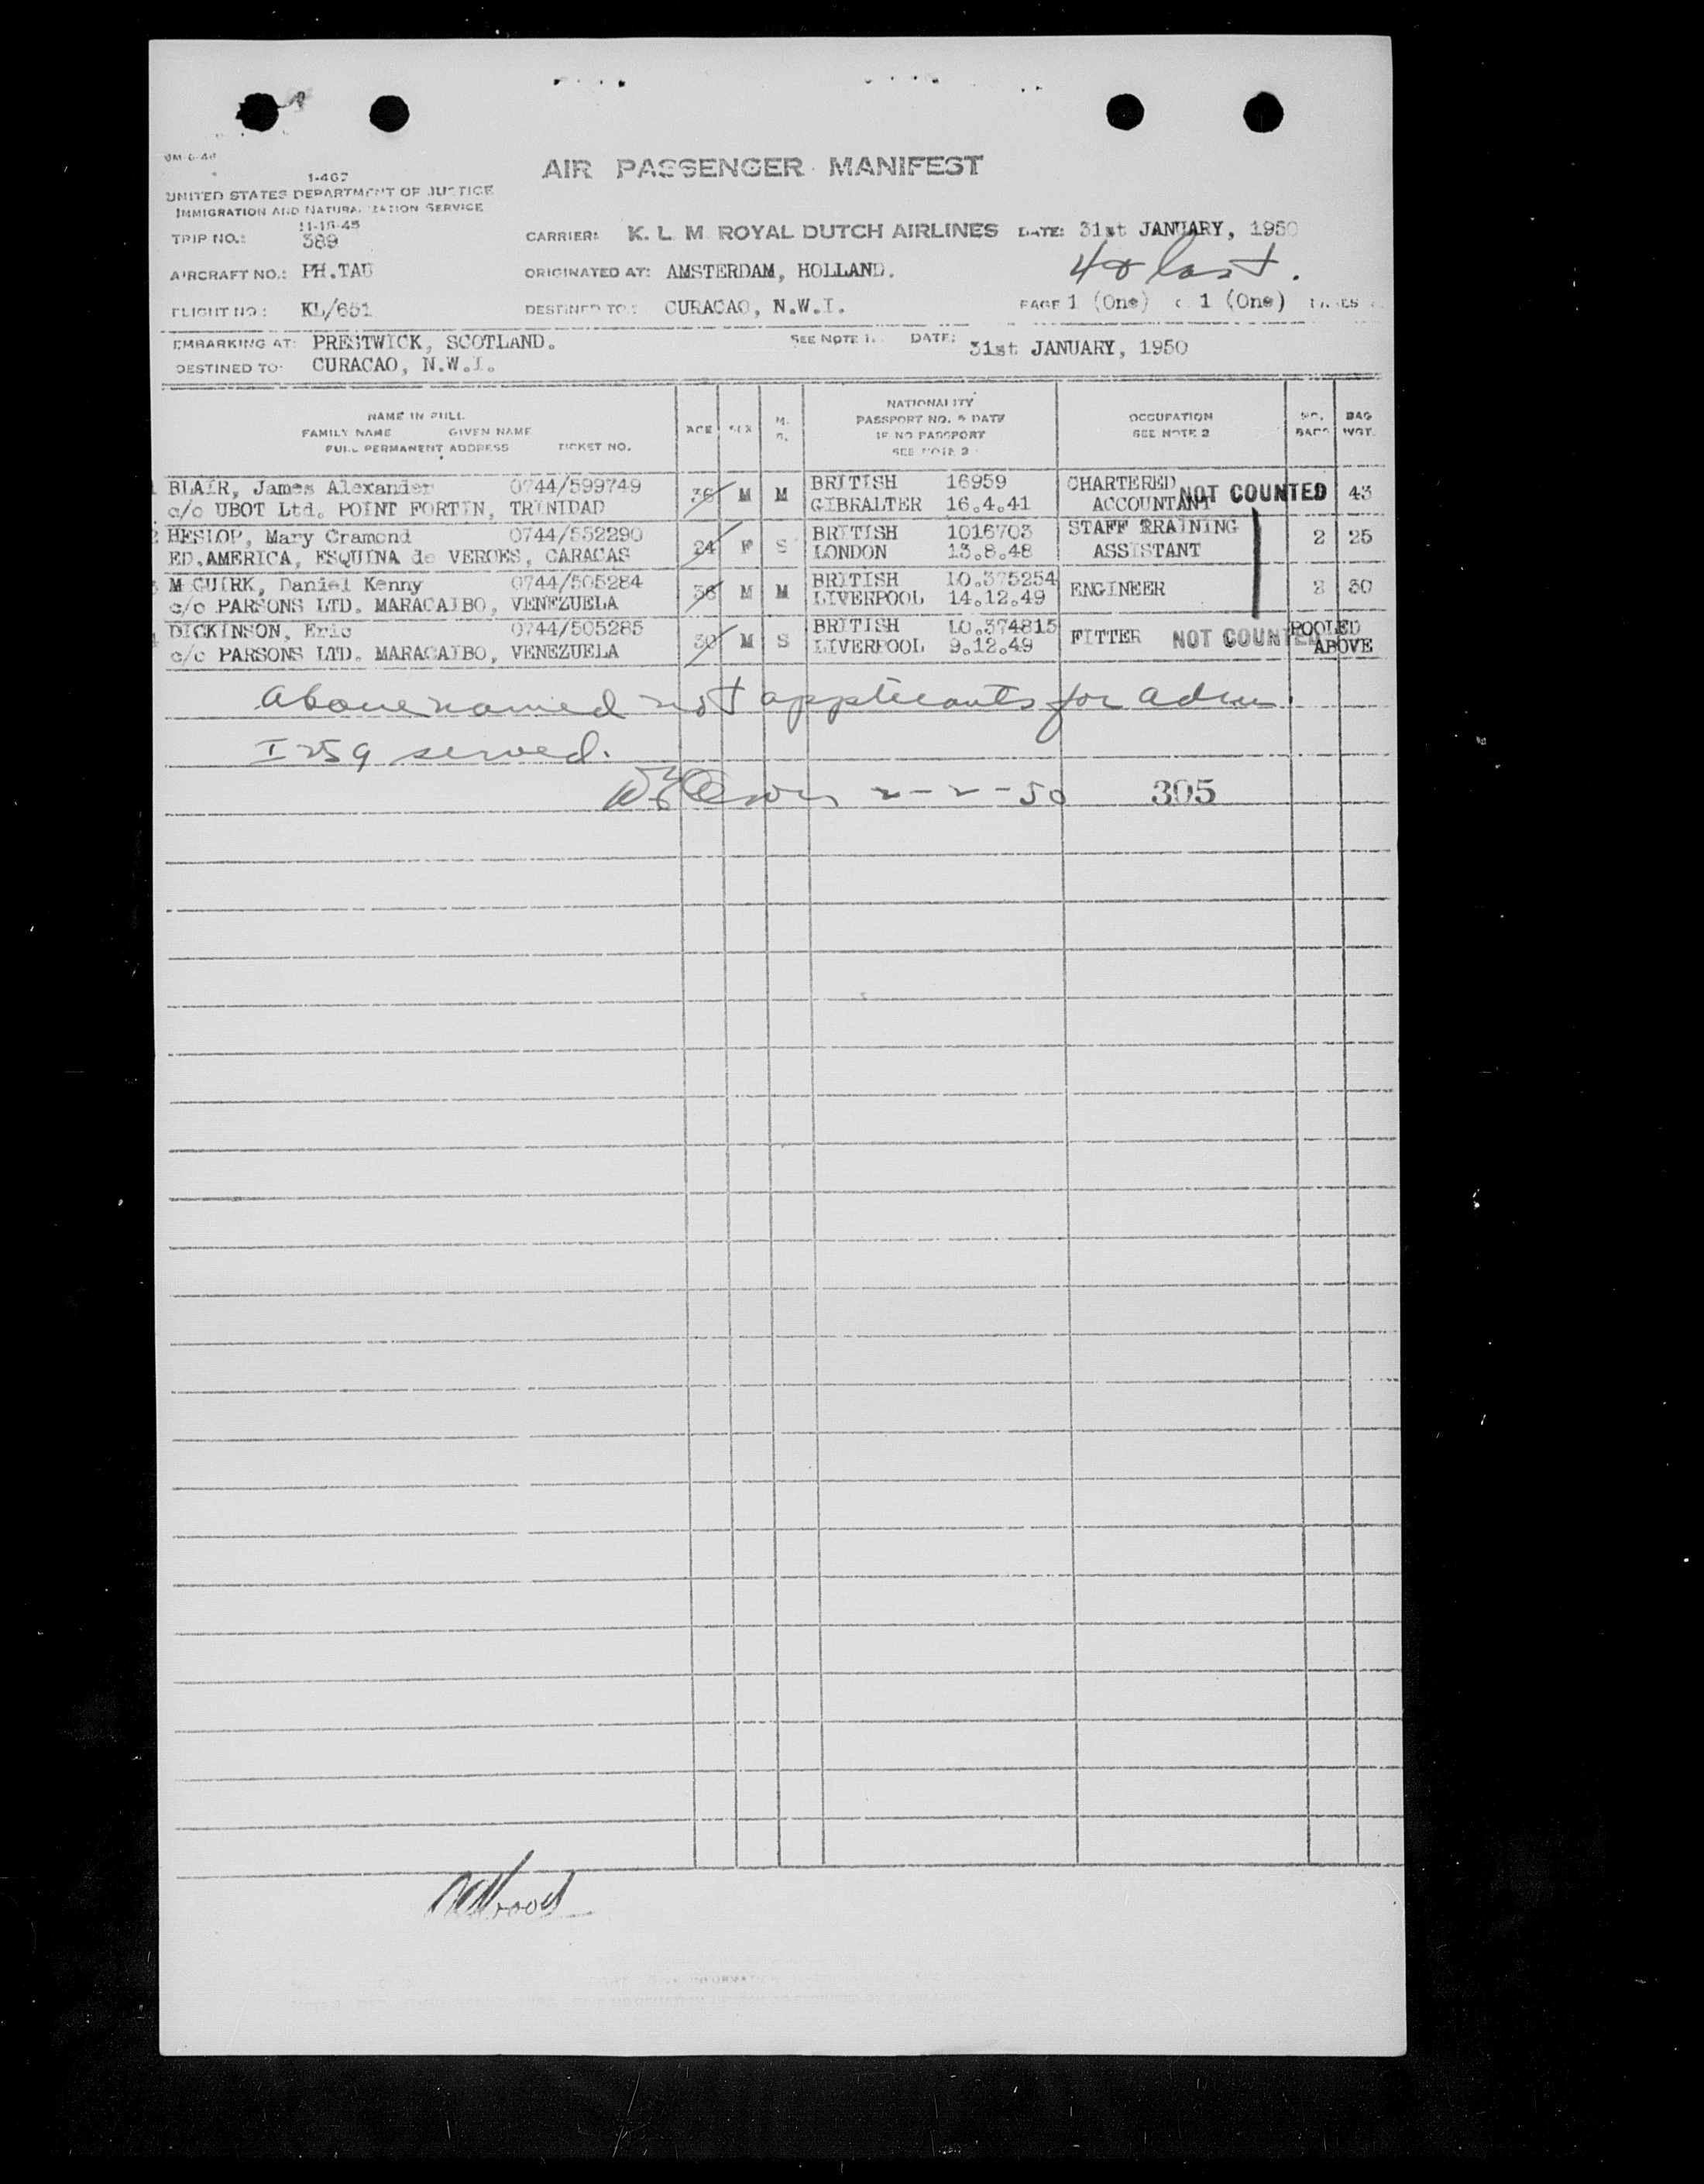 AIR PASSENGER MANIFEST
1-467
UNITED STATES DEPARTMENT OF JUSTICE
IMMIGRATION AND NATURALIZATION SERVICE
11-15-45
TRIP NO.: 389
CARRIER: K. L. M. ROYAL DUTCH AIRLINES DATE: 31st JANUARY, 1950
AIRCRAFT NO.: PH.TAU
ORIGINATED AT: AMSTERDAM, HOLLAND.
last.
FLIGHT NO.: KL/651
DESTINED TO: CURACAO, N.W.I.
PAGE 1 (One) 1 (One)
EMBARKING AT: PRESTWICK, SCOTLAND. SEE NOTE 1. DATE: 31st JANUARY, 1950
DESTINED TO: CURACAO, N.W.I.
NAME IN FULL
FAMILY NAME GIVEN NAME
FULL PERMANENT ADDRESS TICKET NO.
AGE SEX M. S.
NATIONALITY
PASSPORT NO. & DATE
IF NO PASSPORT
SEE NOTE 2
OCCUPATION
SEE NOTE 2
NO. BAGS
BAG WGT.
1 BLAIR, James Alexander 0744/599749 36 M M BRITISH 16959 CHARTERED NOT COUNTED 43
c/o UBOT Ltd. POINT FORTIN, TRINIDAD GIBRALTER 16.4.41 ACCOUNTANT
2 HESLOP, Mary Cramond 0744/552290 24 F S BRITISH 1016703 STAFF TRAINING 2 25
ED.AMERICA, ESQUINA de VEROES, CARACAS LONDON 13.8.48 ASSISTANT
3 M GUIRK, Daniel Kenny 0744/505284 36 M M BRITISH LO.375254 ENGINEER 30
c/o PARSONS LTD. MARACAIBO, VENEZUELA LIVERPOOL 14.12.49
4 DICKINSON, Eric 0744/505285 30 M S BRITISH LO.374815 FITTER NOT COUNTED POOLED
c/o PARSONS LTD. MARACAIBO, VENEZUELA LIVERPOOL 9.12.49 ABOVE
Above named not applicants for adm.
I 259 served.
2-2-50 305